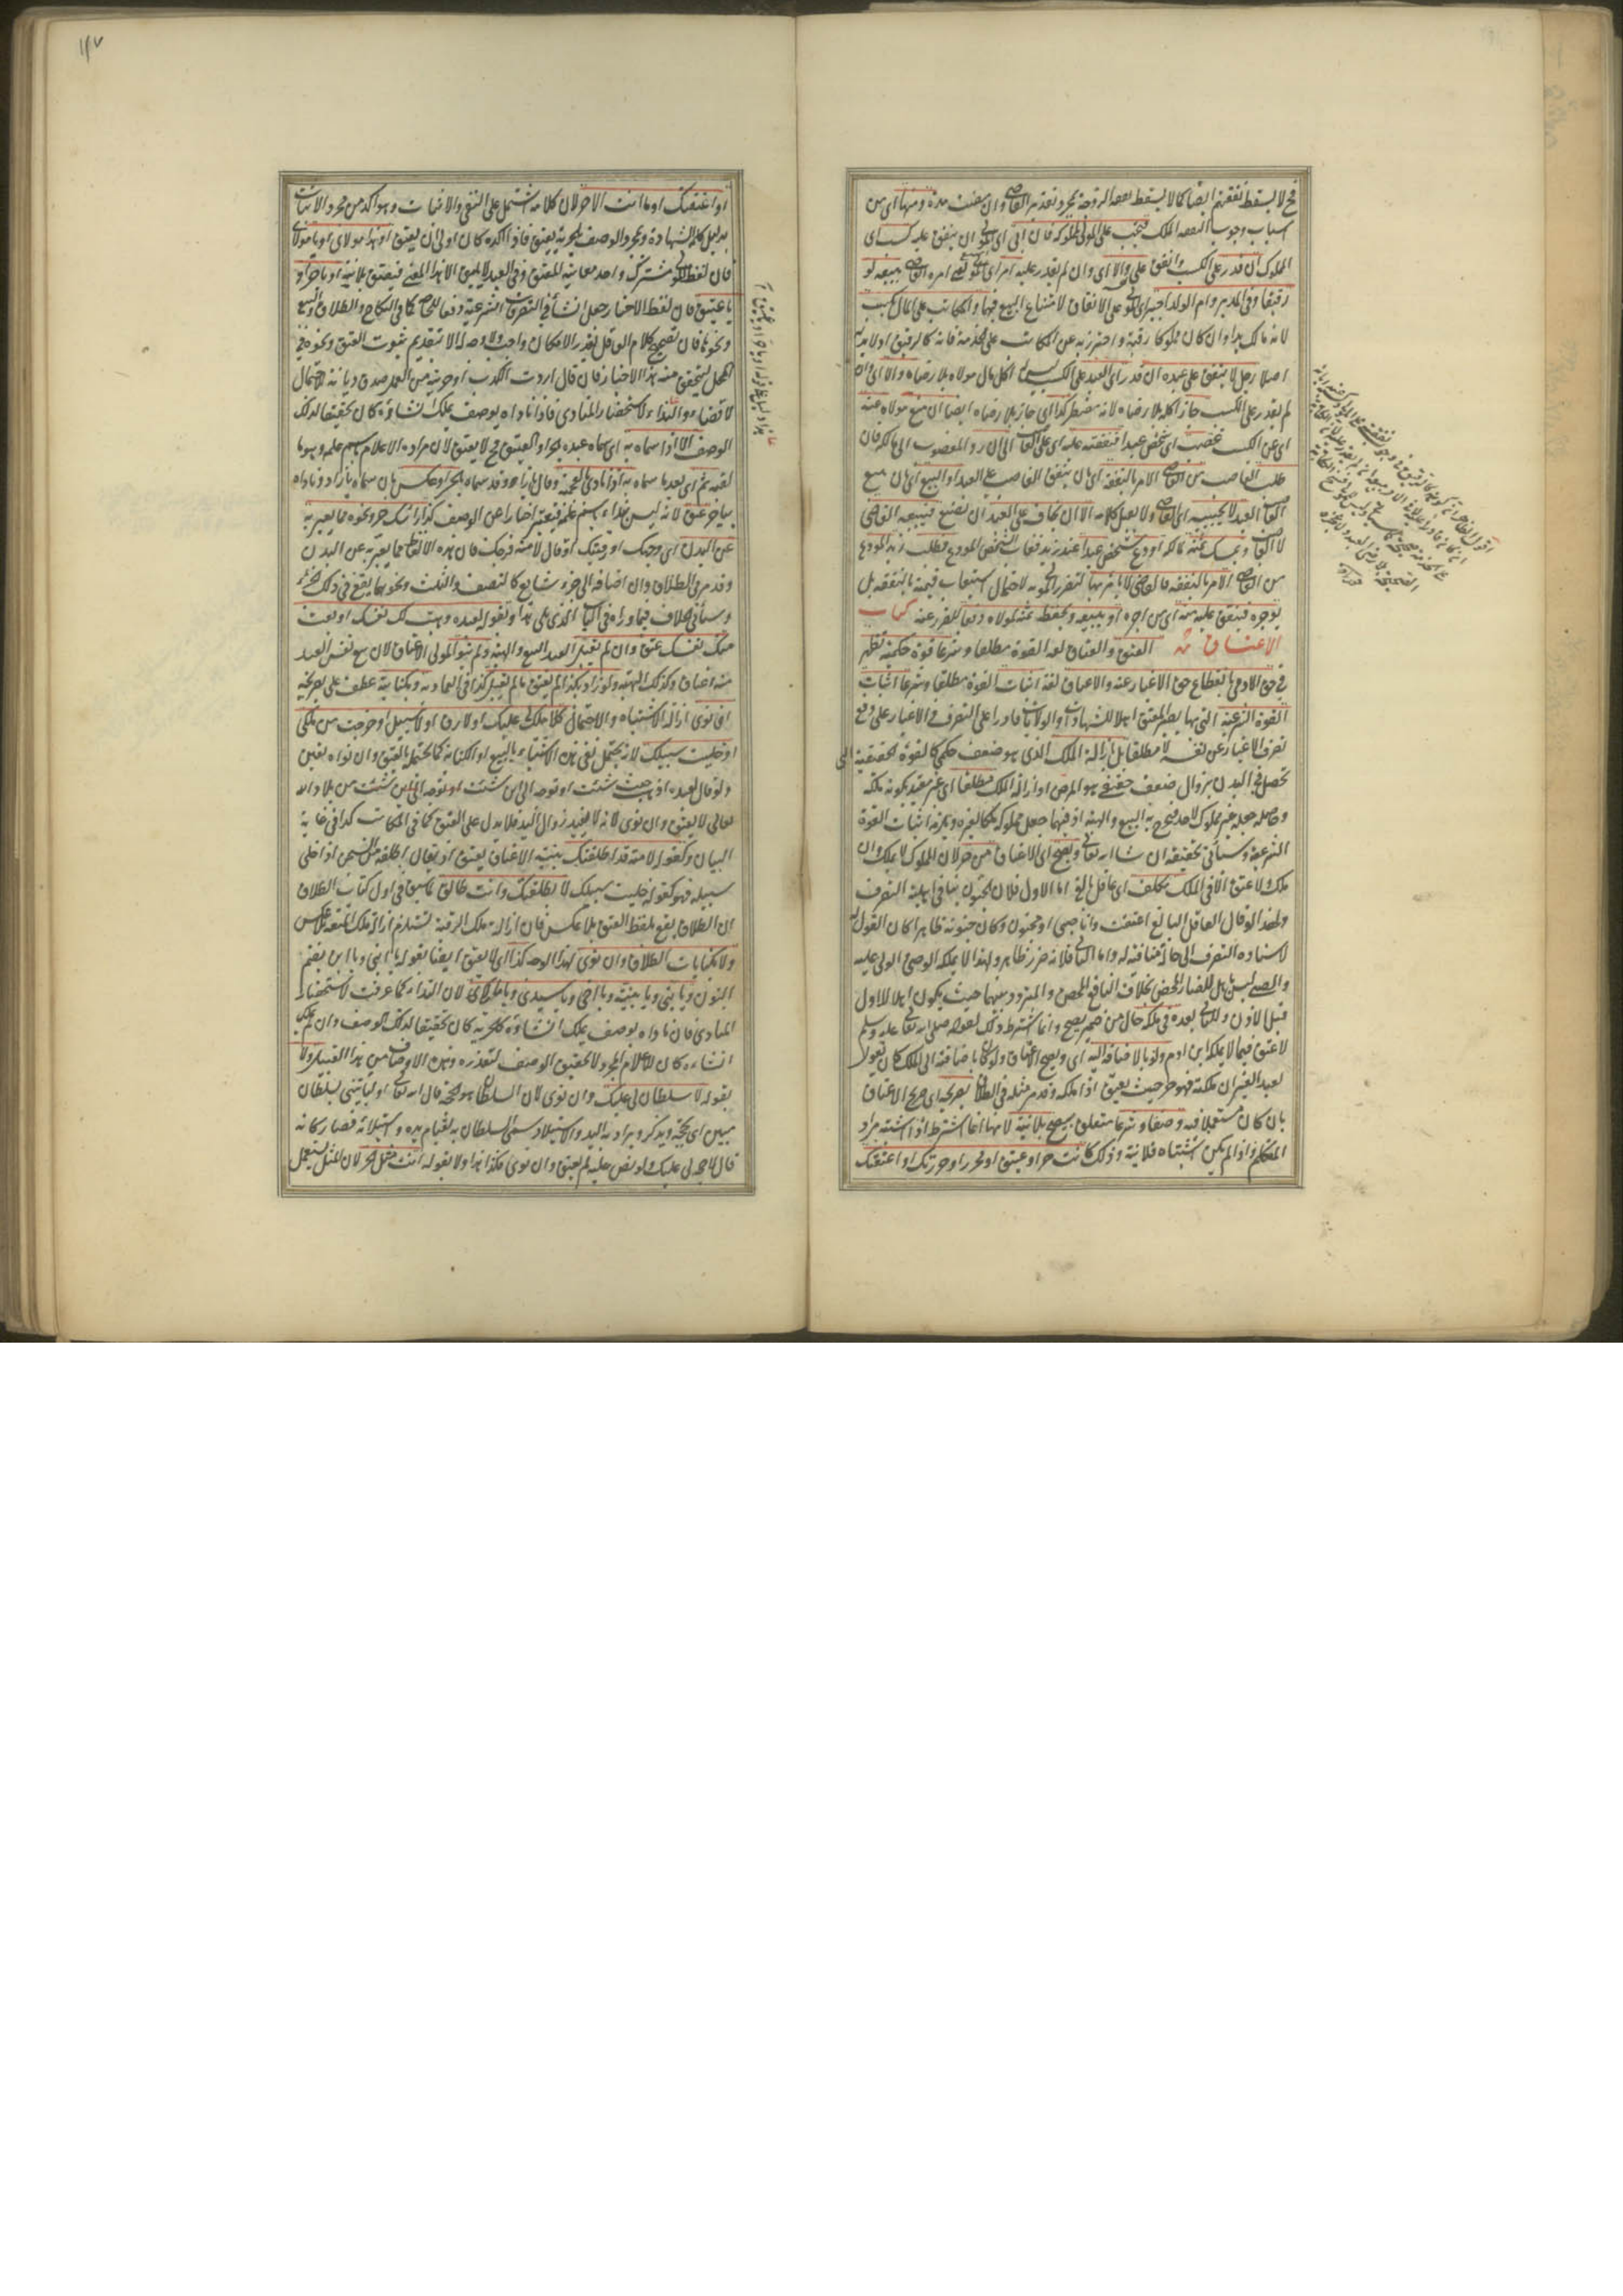 فح لا يسقط نفقتهم ايضا كما لا يسقط نفقة الزوجة بمجرد تقدير القاضي وان مضت مدة ومنها اى من
اسباب وجوب النفقة الملك فتجب على المولى لمملوكه فان ابى اى المولى ان ينفق عليه كسب اى
المملوك ان قدر على الكسب وانفق على والا اى وان لم يقدر عليه امر اى المولى يعنى امره القاضى ببيعه لو
رقيقا وفى المدبر وام الولد اجبر اى المولى على الانفاق لامتناع البيع فيهما والمكاتب على المال يكتسب
لانه مالك يدا وان كان مملوكا رقبة واحترز به عن المكاتب على الخدمة فانه كالرقيق اذ لا يد له
اصلا رجل لا ينفق على عبده ان قدر اى العبد على الكسب ليس له اكل مال مولاه بلا رضاه والا اى وان
لم يقدر على الكسب جاز اكله بلا رضاه لانه مضطر كذا اى جاز بلا رضاه ايضا ان منع مولاه عنه
اى عن الكسب غصب اى شخص عبدا فنفقته عليه اى على الغاصب الى ان رد المغصوب الى مالكه فان
طلب الغاصب من القاضى الامر بالنفقة اى بان ينفق الغاصب على العبد او البيع اى بان يبيع
الغاصب العبد لا يجيبه اى القاضى ولا يقبل كلامه الا ان يخاف على العبد ان يضيع فيبيعه القاضى
لا الغاصب ويمسك ثمنه لمالكه اودع شخص عبدا عند زيد فغاب الشخص المودع فطلب زيد المودع
من القاضى الامر بالنفقة فالقاضى لا يامر بها لتضرر المولى به لاحتمال استيعاب قيمة بالنفقة بل
يؤجره فينفق عليه منه اى من اجره او يبيعه ويحفظ ثمنه لمولاه دفعا للضرر عنه كتاب
الاعتاق العتق والعتاق لغة القوة مطلقا وشرعا قوة حكمية تظهر
فى حق الآدمى بانقطاع حق الاغيار عنه والاعتاق لغة اثبات القوة مطلقا وشرعا اثبات
القوة الشرعية التى بها يصير المعتق اهلا للشهادات والولايات قادرا على التصرف فى الاغيار على دفع
تصرف الاغيار عن نفسه لا مطلقا بل بازالة الملك الذى هو ضعف حكمى كالقوة الحقيقية التى
تحصل فى البدن بزوال ضعف حقيقى هو المرض او ازالة الملك مطلقا اى غير مقيد بكونه ملكه
وحاصله جعله غير مملوك لاحد فخرج به البيع والهبة اذ فيهما جعل مملوكه ملكا لغيره ويلزمه اثبات القوة
الشرعية وسيأتى تحقيقه ان شاء الله تعالى ويصح اى الاعتاق من حر لان المملوك لا يملك وان
ملك ولا عتق الا فى الملك مكلف اى عاقل بالغ اما الاول فلان الجنون ينافى اهلية التصرف
ولهذا لو قال العاقل البالغ اعتقت وانا صبى او مجنون وكان جنونه ظاهرا كان القول له
لاسناده التصرف الى حالة منافية له واما الثانى فلانه ضرر ظاهر ولهذا لا يملكه الوصى والولى عليه
والصبى ليس باهل للضار المحض بخلاف النافع المحض والمتردد بينهما حيث يكون اهلا للاول
قبل الاذن وللثانى بعده فى ملكه حال من ضمير يصح وانما اشترط ذلك لقوله صلى الله تعالى عليه وسلم
لا عتق فيما لا يملكه ابن آدم ولو بالاضافة اليه اى ويصح الاعتاق ولو كان باضافته الى الملك كان يقول
لعبد الغير ان ملكته فهو حر حيث يعتق اذا ملكه وقد مر مثله فى الطلاق بصريحه اى صريح الاعتاق
بان كان مستعملا فيه وضعا وشرعا متعلق بيصح بلا نية لانها انما اشترط اذا اشتبه مراد
المتكلم واذا لم يكن اشتباه فلا نية وذلك كانت حر او عتيق او محرر او حررتك او اعتقتك
١٤٧
او اعتقتك او ما انت الا حر لان كلامه اشتمل على النفى والاثبات وهو آكد من مجرد الاثبات
بدليل كلمة الشهادة وبمجرد الوصف بالحرية يعتق فاذا اكده كان اولى ان يعتق او هذا مولاى او يا مولاى
فان لفظ المولى مشترك واحد معانيه المعتق وفى العبد لا يليق الا هذا المعنى فيعتق بلا نية او يا حر او
يا عتيق فان لفظ الاخبار جعل انشاء فى التصرفات الشرعية دفعا للحاجة كما فى النكاح والطلاق والبيع
ونحوها فان تصحيح كلام العاقل بقدر الامكان واجب ولا وجه له الا بتقديم ثبوت العتق ونحوه فى
المحل ليتحقق منه هذا الاخبار فان قال اردت الكذب او حريته من العمل صدق ديانة للاحتمال
لا قضاء والنداء لاستحضار المنادى فاذا ناداه بوصف يملك انشاؤه كان تحقيقا لذلك
الوصف الا اذا سماه به اى سماه عبده بحر او العتيق فح لا يعتق لان مراده الاعلام باسم علمه وهو ما
لقبه ثم اى بعد ما سماه به اذا نادى بالعجمية وقال يا آزاد وقد سماه بالحر او عكس بان سماه بآزاد وناداه
بيا حر عتق لانه ليس بنداء باسم علمه فيعتبر اخبارا عن الوصف كذا راسك حر ونحوه مما يعبر به
عن البدن اى وجهك او رقبتك او قال لامته فرجك فان هذه الالفاظ مما يعبر به عن البدن
وقد مر فى الطلاق وان اضافه الى جزء شايع كالنصف والثلث ونحوهما يقع فى ذلك الجزء
وسيأتى الخلاف فيما وراءه فى الباب الذى يلى هذا وبقوله لعبده وهبت لك نفسك او بعت
منك نفسك عتق وان لم يقبل العبد البيع والهبة ولم ينو المولى الاعتاق لان بيع نفس العبد
منه اعتاق وكذلك الهبة ولو زاد بكذا لم يعتق ما لم يقبل كذا فى العمادية وبكنايته عطف على بصريحه
ان نوى ازالة الاشتباه والاحتمال كلا ملك لى عليك او لا رق او لا سبيل او خرجت من ملكى
او خليت سبيلك لانه يحتمل نفى هذه الاشياء بالبيع او الكتابة كما يحتمل بالعتق وان نواه تعين
ولو قال لعبده اذهب حيث شئت او توجه الى اين شئت او توجه الى اين شئت من بلاد الله
تعالى لا يعتق وان نوى لانه لا يفيد زوال اليد فلا يدل على العتق كما فى المكاتب كذا فى غاية
البيان وكقوله لامته قد اطلقتك بنية الاعتاق يعتق اذ يقال اطلقه من السجن اذا خلى
سبيله فهو كقوله خليت سبيلك لا بطلقتك وانت طالق لما سبق فى اول كتاب الطلاق
ان الطلاق يقع بلفظ العتق بلا عكس فان ازالة ملك الرقبة يستلزم ازالة ملك المتعة بلا عكس
ولا بكنايات الطلاق وان نوى لهذا الوجه كذا اى لا يعتق ايضا بقوله يا ابنى ويا ابن بضم
النون ويا بنى ويا بنية ويا اخى ويا سيدى ويا مالكى لان النداء كما عرفت لاستحضار
المنادى فان ناداه بوصف يملك انشاؤه كالحرية كان تحقيقا لذلك الوصف وان لم يملك
انشاءه كان للاعلام المجرد لا لتحقيق الوصف لتعذره وهذه الاوصاف من هذا القبيل ولا
بقوله لا سلطان لى عليك وان نوى لان السلطان هو الحجة قال الله تعالى او ليأتينى بسلطان
مبين اى بحجة ويذكر ويراد به اليد والاستيلاء وسمى السلطان به لقيام يده واستيلائه فصار كانه
قال لا حجة لى عليك ولو نص عليه لم يعتق وان نوى فكذا هذا ولا بقوله انت مثل الحر لان المثل يستعمل